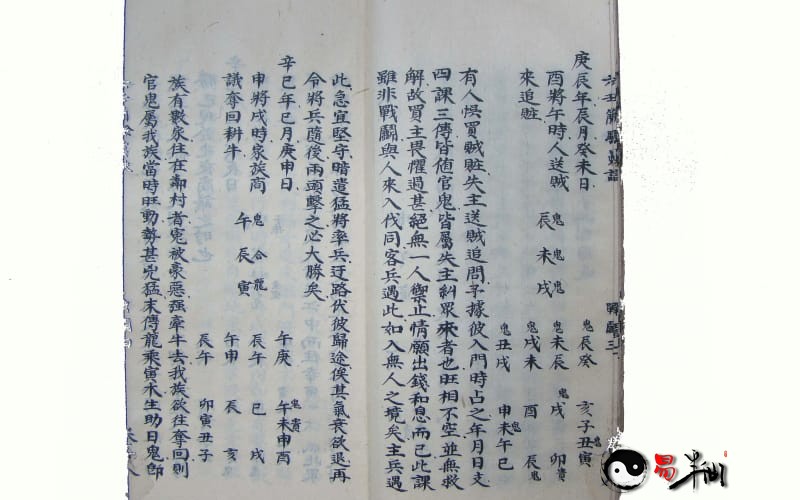 庚辰年辰月癸未日
酉將午時人送賊
來追賍
鬼鬼鬼
辰未戌
鬼辰癸
未辰鬼
鬼戌未
鬼丑戌
亥子丑寅鬼
鬼戌 卯貴
酉 辰鬼
申未午巳鬼
有人悞買賊賍失主送賊追問予據彼入門時占之年月日支
四課三傳皆值官鬼皆屬失主糾眾來者也旺相不空並無救
解故買主畏懼過甚絕無一人禦止情願出錢和息而已此課
雖非戰鬭與人來入伐同客兵遇此如入無人之境矣主兵遇
此急宜堅守暗遣猛將率兵迂路伏彼歸途俟其氣衰欲退再
令將兵隨後兩頭擊之必大勝矣
辛巳年巳月庚申日
申將戌時家族商
議奪回耕牛
鬼合龍
午辰寅
午庚
辰午
午申
辰午
鬼貴
午未申酉
巳 戌
辰 亥
卯寅丑子
族有數家住在鄰村者冤被豪惡强牽牛去我族欲往奪回則
官鬼屬我族當時旺動勢甚兇猛末傳龍乘寅木生助日鬼卽
易